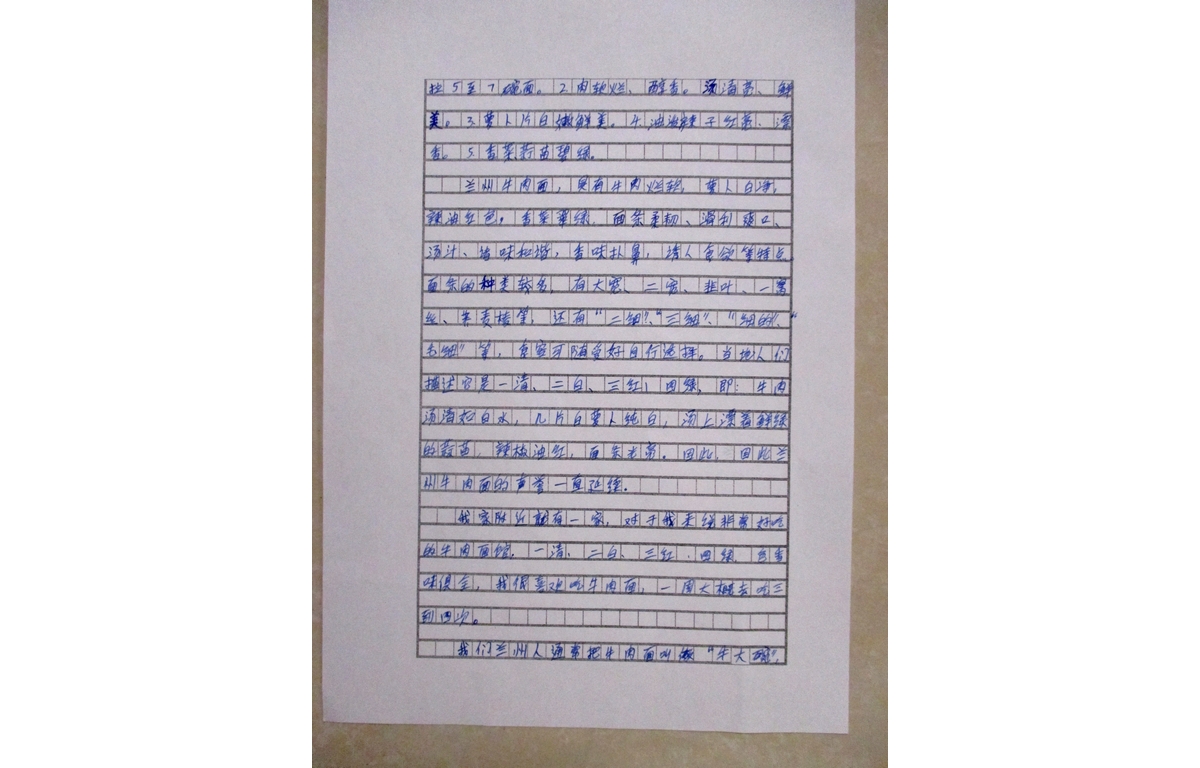 拉5至7碗面。2.肉软烂、醇香。汤清亮、鲜
美。3.萝卜片白嫩鲜美。4.油泼辣子红亮、漂
香。5.香菜蒜苗碧绿。
兰州牛肉面,具有牛肉烂软,萝卜白净,
辣油红色,香菜翠绿,面条柔韧、滑利爽口、
汤汁、诸味和谐,香味扑鼻,诱人食欲等特点
面条的种类较多,有大宽、二宽、韭叶、一窝
丝、荞麦棱等,还有“二细”、“三细”、“细的”、“
毛细”等,食客可随爱好自行选择。当地人们
描述它是一清、二白、三红、四绿,即:牛肉
汤清松白水,几片白萝卜纯白,汤上漂着鲜绿
的蒜苗,辣椒油红,面条光亮。因此,因此兰
州牛肉面的声誉一直延续.
我家附近就有一家,对于我来线非常好吃
的牛肉面馆,一清、二白、三红、四绿,色香
味俱全,我很喜欢吃牛肉面,一周大概去吃三
到四次。
我们兰州人通常把牛肉面叫做“牛大碗”,